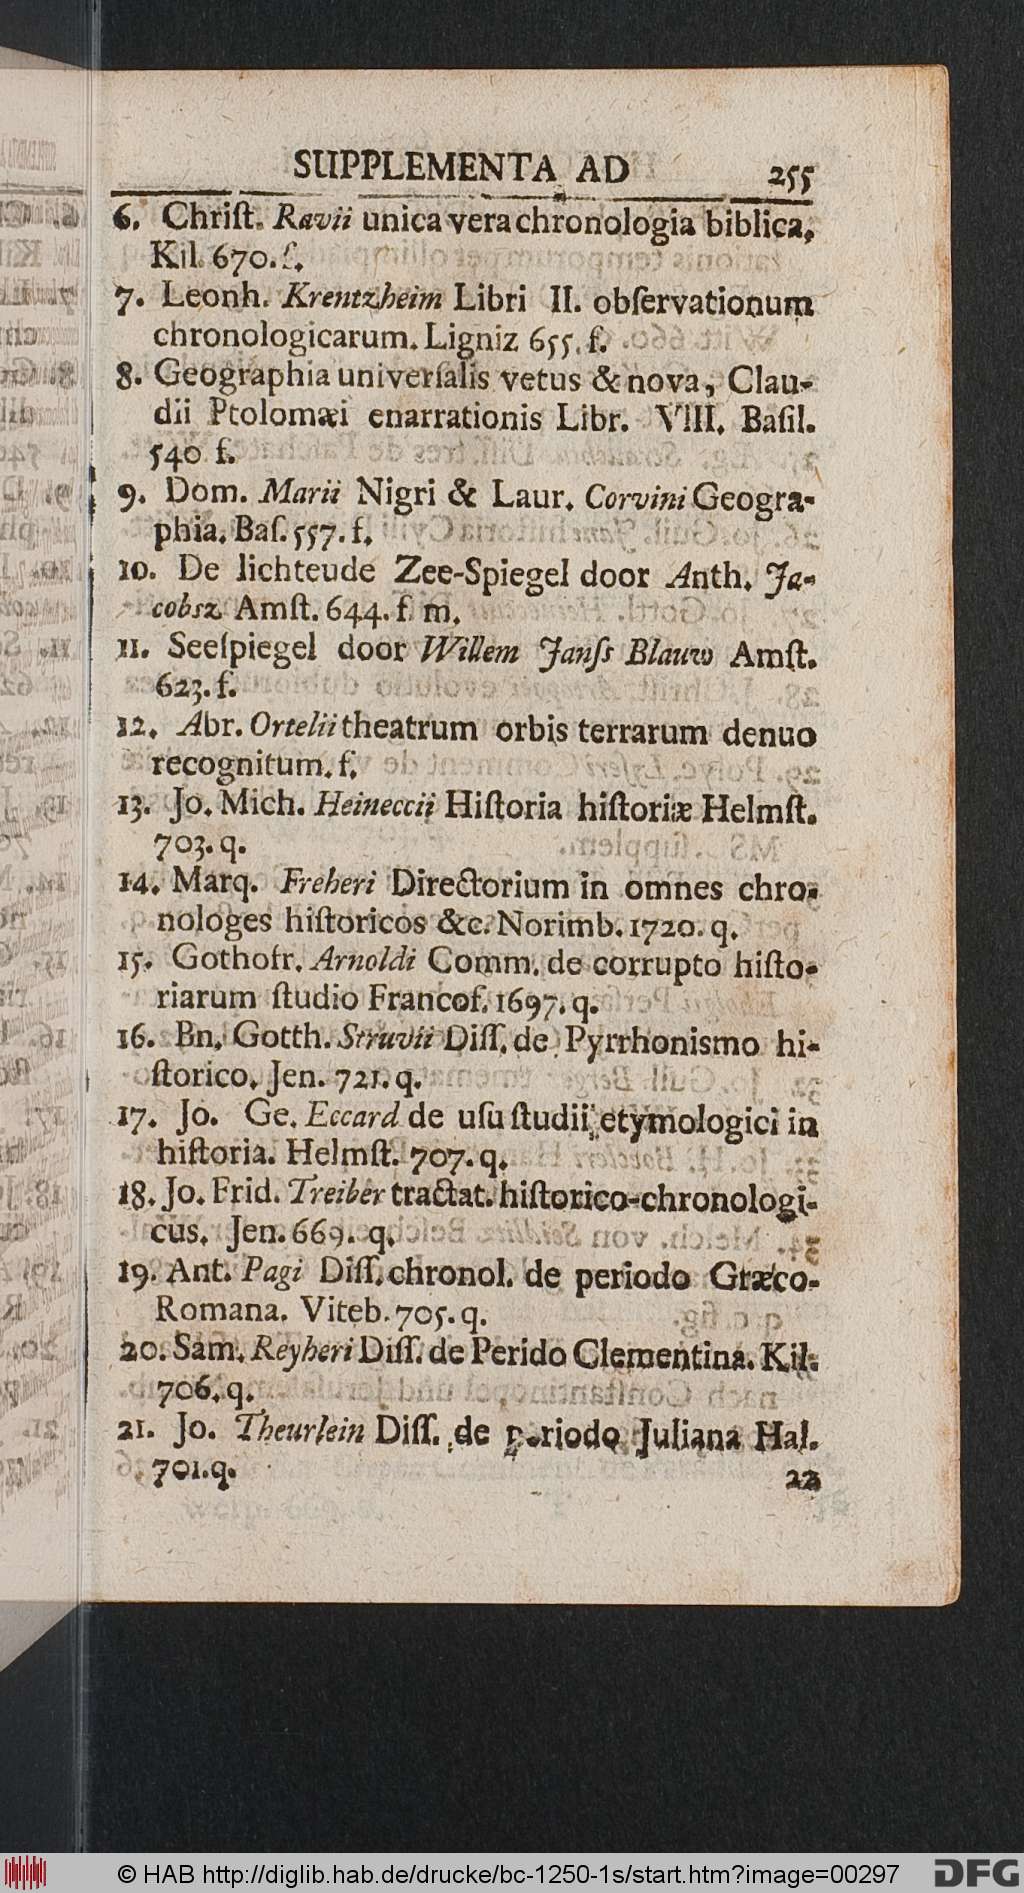 SUPPLEMENTA AD 255
6. Chriſt. Ravii unica vera chronologia biblica,
Kil. 670. f.
7. Leonh. Krentzheim Libri II. obſervationum
chronologicarum. Ligniz 655. f.
8. Geographia univerſalis vetus & nova, Clau-
dii Ptolomæi enarrationis Libr. VIII. Baſil.
540 f.
9. Dom. Marii Nigri & Laur. Corvini Geogra-
phia. Baſ. 557. f.
10. De lichteude Zee-Spiegel door Anth. Ja-
cobsz Amſt. 644. f m.
11. Seeſpiegel door Willem Janſs Blauw Amſt.
623. f.
12. Abr. Ortelii theatrum orbis terrarum denuo
recognitum. f.
13. Jo. Mich. Heineccii Hiſtoria hiſtoriæ Helmſt.
703. q.
14. Marq. Freheri Directorium in omnes chro-
nologes hiſtoricos &c. Norimb. 1720. q.
15. Gothofr. Arnoldi Comm. de corrupto hiſto-
riarum ſtudio Francof. 1697. q.
16. Bn. Gotth. Struvii Diſſ. de Pyrrhonismo hi-
ſtorico. Jen. 721. q.
17. Jo. Ge. Eccard de uſu ſtudii etymologici in
hiſtoria. Helmſt. 707. q.
18. Jo. Frid. Treiber tractat. hiſtorico-chronologi-
cus. Jen. 669. q.
19. Ant. Pagi Diſſ. chronol. de periodo Græco-
Romana. Viteb. 705. q.
20. Sam. Reyheri Diſſ. de Perido Clementina. Kil.
706. q.
21. Jo. Theurlein Diſſ. de periodo Juliana Hal.
701. q.
22
© HAB http://diglib.hab.de/drucke/bc-1250-1s/start.htm?image=00297
DFG